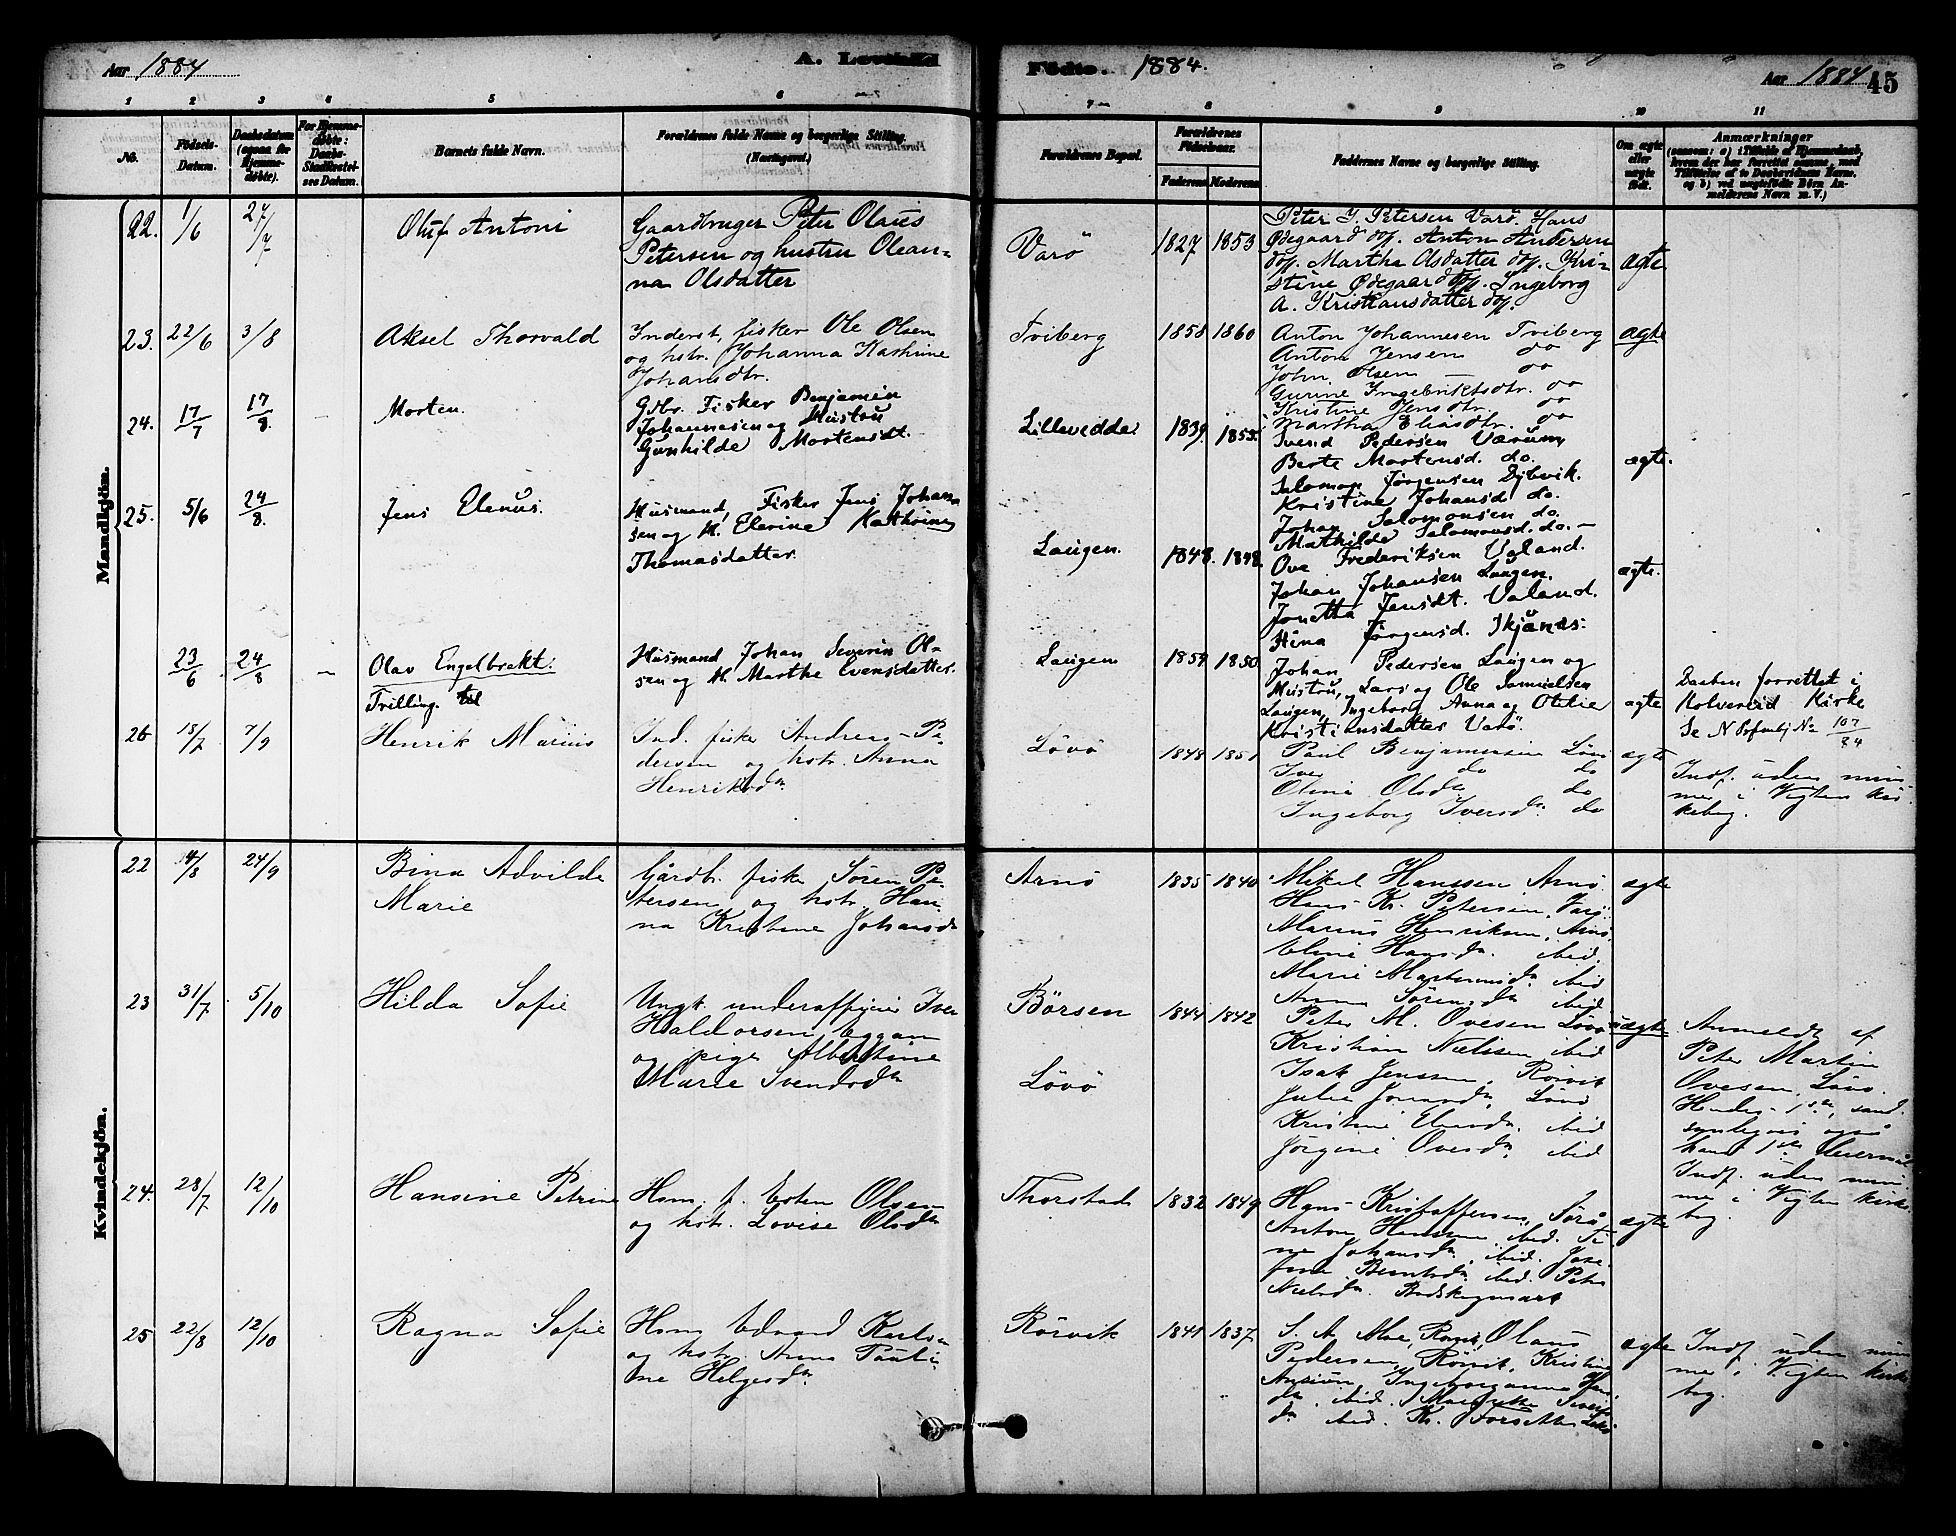 Aar 1884
A. Levende
Fødte. 1884.
Aar 1884
45
1 2 3 4 5 6
7 8 9 10 11
No.
Fødsels-
Datum.
Daabsdatum
(ogsaa for
Hjemme-
døbte).
For Hjemme-
døbte:
Daabs-
Stadfæstel-
ses Datum.
Barnets fulde Navn.
Forældrenes fulde Navne og borgerlige Stilling.
Forældrenes Bopæl.
Forældrenes
Fødselsaar.
Faderens Moderens
Faddernes Navne og borgerlige Stilling.
Om ægte
eller
uægte
født.
Anmærkninger
Mandkjøn.
22. 1/6 27/7 Oluf Antoni
Gaardbruger Peter Olaus
Petersen og hustru Olean-
na Olsdatter
Varö 1827 1853
Peter J. Petersen Varö, Hans
Ødegaard do/. Anton Andersen
do/. Martha Olsdatter do/. Kri-
stine Ødegaard do/. Ingeborg
A. Kristiansdatter do/.
ægte
23. 22/6 3/8 Aksel Thorvald
Inderst, fisker Ole Olsen
og hstr. Johanna Kathrine
Johansdtr.
Tviberg 1858 1860
Anton Johannesen Tviberg
Anton Jensen do
John Olsen do
Gurine Ingebriktsdtr. do
Kristine Jensdtr. do
Martha Eliasdtr. do
ægte
24. 17/7 17/8 Morten.
Gdbr. Fisker Benjamin
Johannesen og Hustru
Gunhilde Mortensdt.
Lillevedde 1839 1855.
Svend Pedersen Værum
Berte Mortensd. do.
Salomon Jørgensen Dybvik.
Kristine Johansd. do.
Johan Salomonsen do.
Mathilde Salomonsd. do.
ægte.
25. 5/6 24/8. Jens Elenus.
Husmand, Fisker Jens Johan-
sen og H. Elerine Kathrine
Thomasdatter.
Laugen. 1848. 1848.
Ove Frederiksen Valand.
Johan Johansen Laugen.
Jonetta Jensdt. Valand.
Stina Jørgensd. Skjånes.
ægte.
23/6 24/8 – Olav Engelbrekt.
Tvilling.
Husmand Johan Severin Ol-
sen og H. Marthe Evensdatter.
Laugen 1859 1850
Johan Pedersen Laugen og
Hustru, Lars og Ole Samuelsen
Laugen, Ingeborg Anna og Otelie
Kristiansdatter Varö.
ægte
Daaben forrettet i
Kolvereid Kirke
Se N
107/84
26 18/7 7/9 Henrik Marius
Ind. fisker Andreas Pe-
dersen og hstr. Anna
Henriksdr.
Lövö 1848 1851
Paul Benjaminsen Lövö
Iver do do
Oline Olsdr. do
Ingeborg Iversdr. do
ægte
Indf. uden num-
mer i Vigten kir-
kebog.
Kvindekjøn.
22 4/8 24/9 Bina Advilde
Marie
Gårdb. fisker Sören Pe-
tersen og hstr. Han-
na Kristine Johansdr
Arnö 1835 1840
Mikal Hanssen Arnö
Hans Kr. Petersen,
Marius Henriksen, Arnö
Eline Hansdr. ibid.
Marie ibid
Anna Sörensdr ibid
ægte
23 31/7 5/10 Hilda Sofie
Ungk. underofficer Iver
Haldorsen
og pige Albertine
Marie Svendsdr
Börsen
Lövö
1844 1842
Peter M. Ovesen Lövö
Kristian Nielssen ibid
Isak Jenssen, Rörvik
Julie Lövö
Kristine ibid
Jörgine Ovesdr. ibid
uægte
Anmeldt af
Peter Martin
Ovesen, Lövö.
Hendes 1ste, sand-
synligvis også
hans 1ste leiermål
Indf. uden num-
mer i Vigten kirke-
bog.
24. 28/7 12/10 Hansine Petrine
Hsm. f. Esten Olsen
og hstr. Lovise Olsdr
Thorstad 1832 1849
Hans Kristoffersen
Anton Hanssen ibid.
Johansdr. ibid. Jose-
fine ibid. Peter
ægte
25 22/8 12/10 Ragna Sofie
Hsm. Edvard Karls-
og hstr. Anna Pauli-
ne Helgesdr
Rörvik 1841 1837
Olaus
Pedersen, Rörvik, Kristine
Ingeborganna
dr. ibid.
dr. ibid. Kr.
ægte
Indf. uden num-
mer i Vigten kirke-
bog.